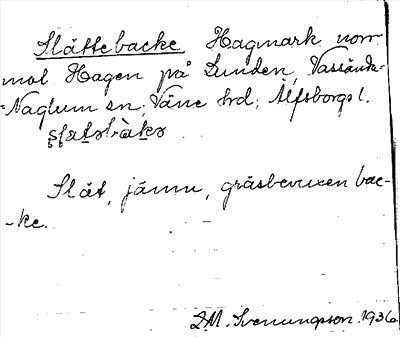 Slättebacke Hagmark norr
mot Hagen på Lunden, Vassända-
-Naglum sn; Väne hrd; Älfsborgs l.
s̨l̨ɑt̠ǝbàk̠ǝ
Slät, jämn, gräsbevuxen bac-
-ke.
D.M. Svenungsson 1936